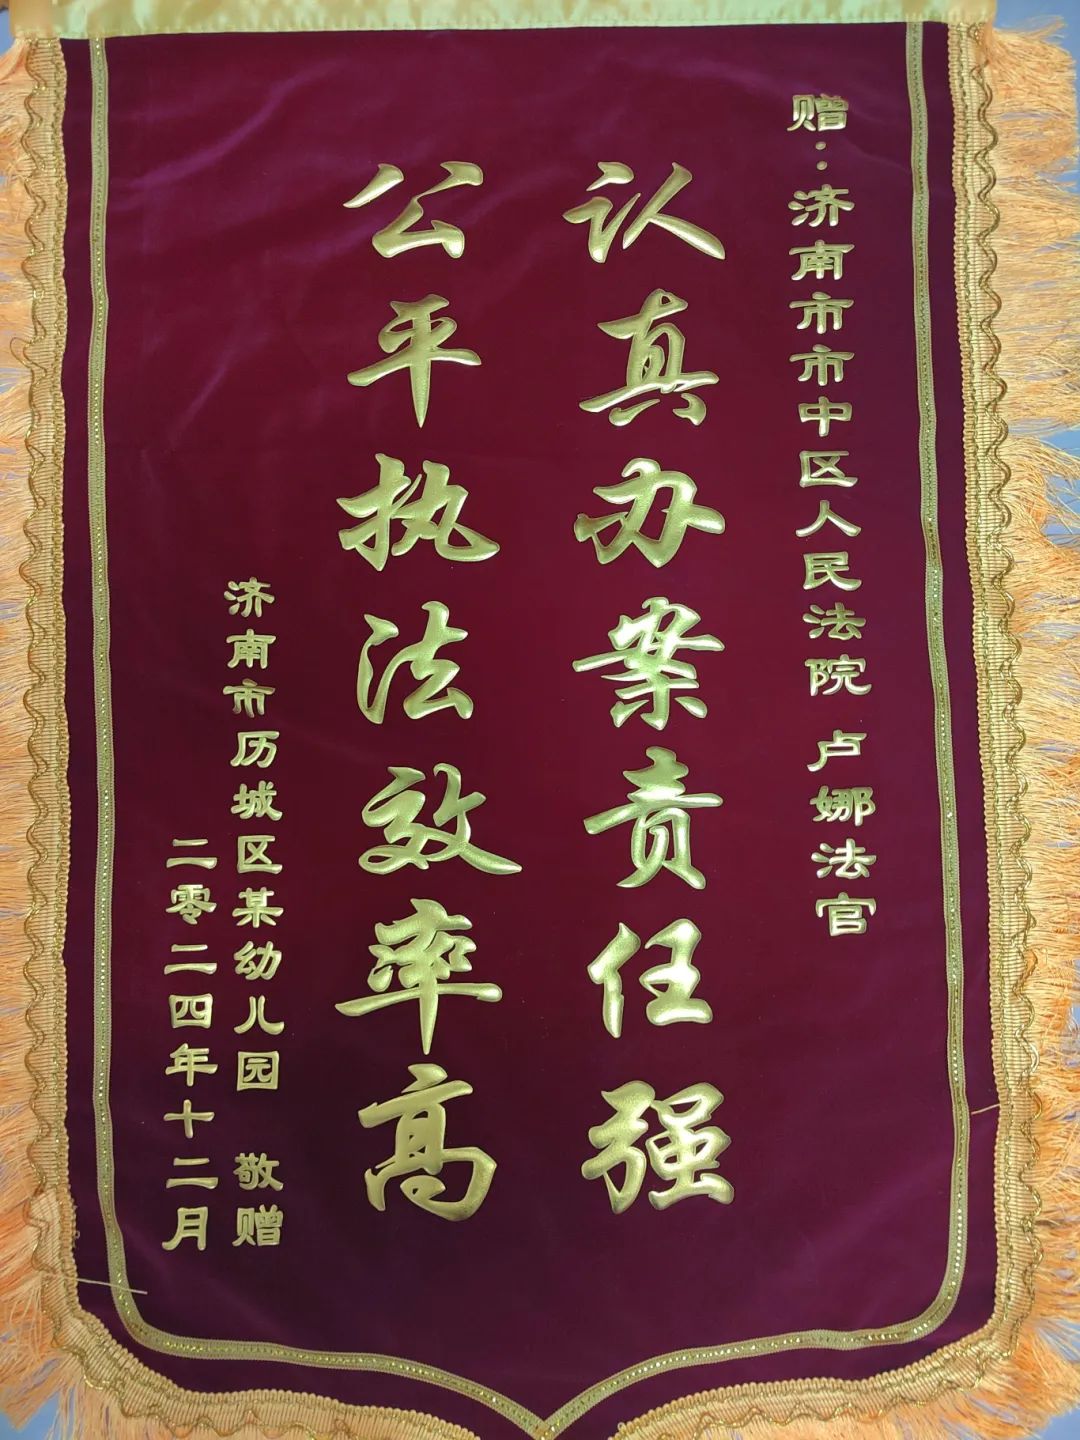 赠：济南市市中区人民法院 卢娜法官
认真办案责任强
公平执法效率高
济南市历城区某幼儿园 敬赠
二零二四年十二月